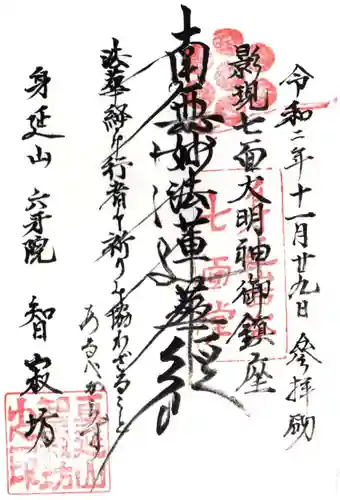 令和二年十一月廿九日 参拝砌
影現七面大明神御鎮座
南無妙法蓮華経
法華経の行者の祈りの協わざることあるべからず
身延山 六牙院 智寂坊
七面堂